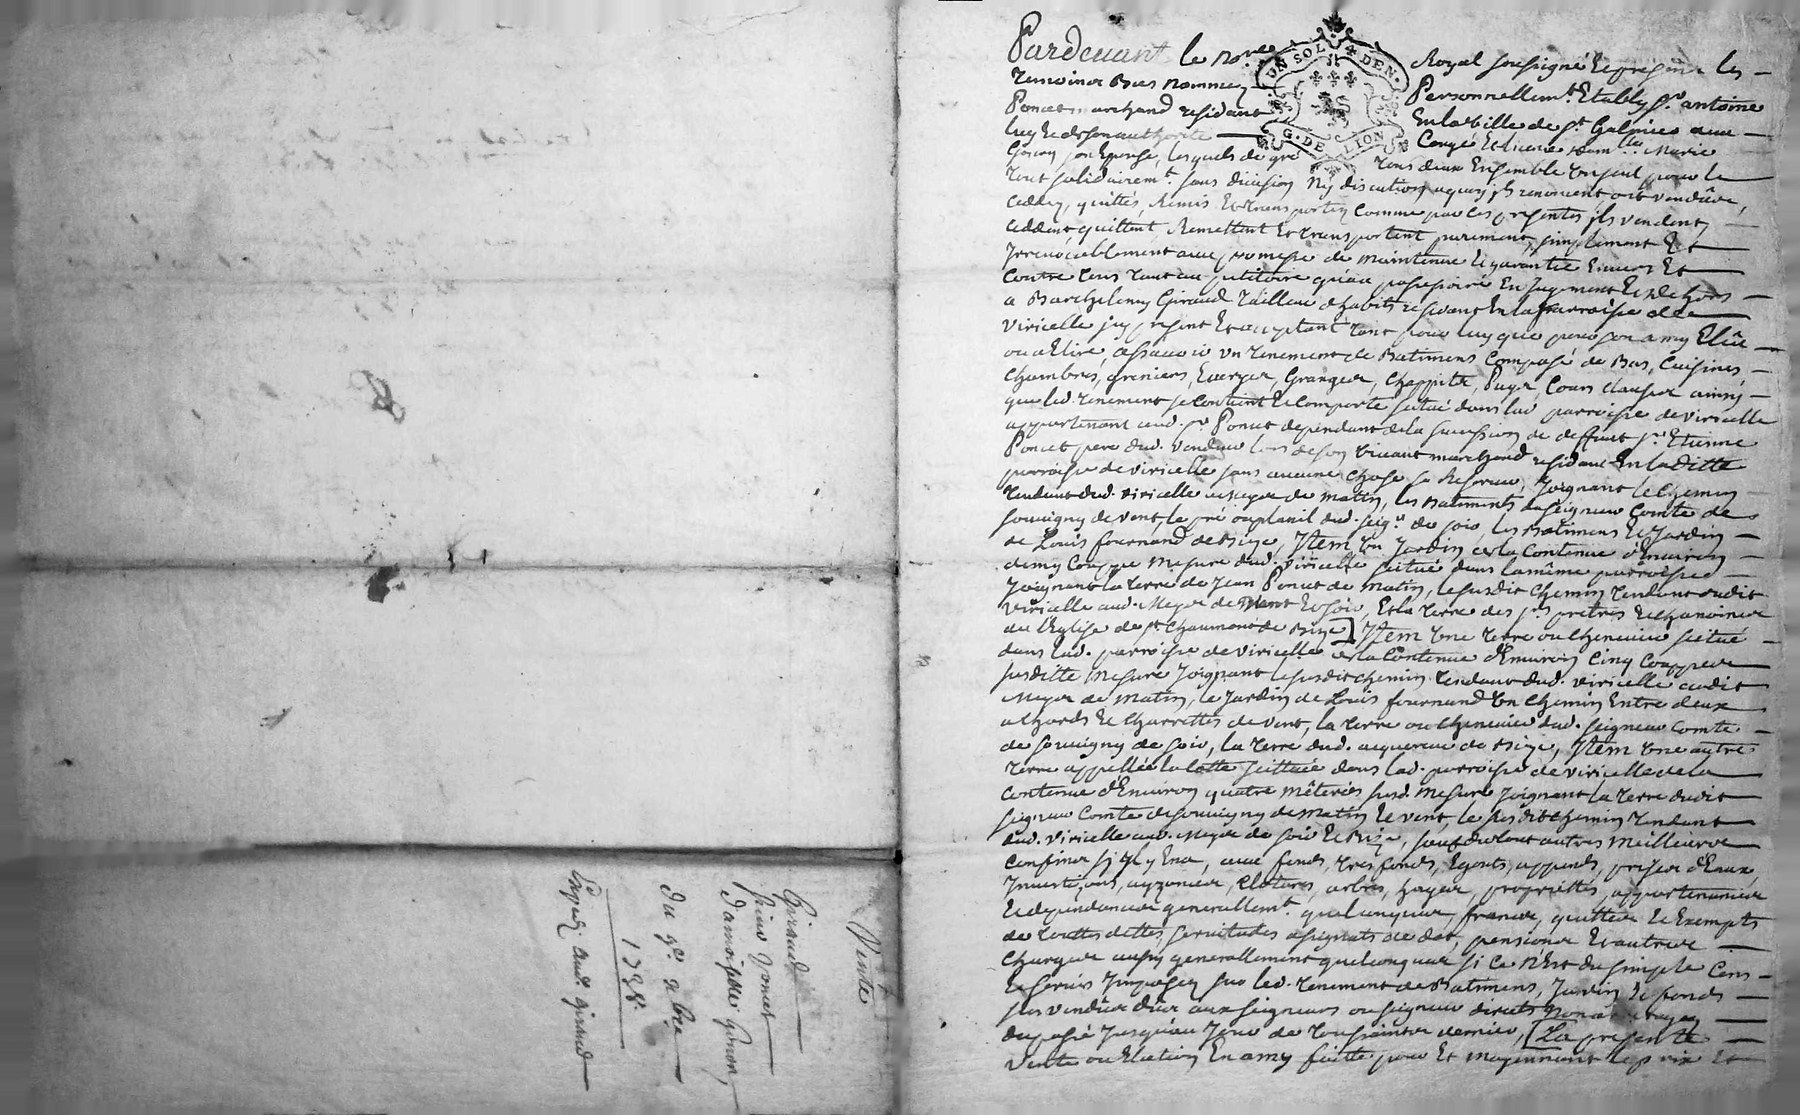 Pardevant le No.re Royal soussigné Et presents les
temoins Bas nommez Personnellem.t Etably s.r antoine
Poncet marchand residant En la ville de s.t Galmier avec
luy Et de son authorité Congé Et licence dam.lle Marie
son Epouse, lesquels de gré tous deux Ensemble Un seul pour le
tout solidairem.t sans division Ny discution, aquoy ils renoncent, ont vendûs,
ceddez, quittés, Remis Et transportez comme par ces presentes ils vendent,
ceddent quittent Remettent Et transportent purement, simplement Et
Irrevocablement avec promesse de maintenue Et garantie Envers Et
Contre tous tant au petitoire qu'au possessoire En jugement Et dehors
a Barthelemy Giraud tailleur d'habits residant En la parroisse de
Viricelle icy present Et acceptant tant pour luy que pour son amy Elû
ou a Elire, assavoir un tenement de Batimens Composé de Bas, Cuisines
Chambres, greniers, Granges, Chappits, Puys, Cours clauses ainsy
que led. tenement se contient Et comporte scitué dans lad. parroisse de viricelle
appartenant aud. s.r Poncet dependant de la succession de deffunt s.r Etienne
Poncet pere dud. vendeur lors de son vivant marchand residant En laditte
parroisse de viricelle sans aucune chose se Reserver, Joignant le Chemin
tendant dud. viricelle a Meys de matin, les Batiments du seigneur Comte de
souvigny de vent, le pré dud. seig.r de soir, les Batimens Et Jardin
de Louis fournand de Bize, Item Un Jardin de la Contenue d'Environ
demy Couppe Mesure dud. viricelle scitué dans la même parroisse
Joignant la terre de Jean Poncet de matin, le susdit Chemin tendant dudit
viricelle aud. Meys de vent Et soir, Et la terre des s.rs prêtres Et chanoines
de l'Eglise de s.t Chaumont de Bize] Item Une terre ou Cheneviere scitué
dans lad. parroisse de viricelle de la Contenue d'Environ Cinq Couppes
susditte Mesure Joignant le susdit chemin tendant dud. viricelle audit
Meys de matin, le Jardin de Louis fournand Un Chemin Entre deux
a Chards Et Charrettes de vent, la terre ou Cheneviere dud. seigneur Comte
de souvigny de soir, la terre dud. acquereur de Bize, Item Une autre
terre appellée la scittuée dans lad. parroisse de viricelle de la
contenue d'Environ quatre mêterées susd. Mesure Joignant la terre dudit
seigneur Comte de souvigny de matin Et vent, le susdit chemin tendant
dud. viricelle aud. Meys de soir Et Bize, sauf du tout autres Meilleurs
Confins sy Il y En a, avec fonds, tres fonds, Egouts, appends, prises d'Eaux,
aizances, Clotures, arbres, hayes, proprietés, appartenances
Et dependances generallem.t quelconques, francs, quittes Et Exempts
de touttes dettes, servitudes assignats de dot, pensions Et autres
Charges aussy generallement quelconques si ce n'est du simple Cens
Et servis Imposez sur led. tenement de Batimens, Jardin Et fonds
sus vendûs dûs aux seigneurs ou seigneur directs
du passé Jusqu'au Jour de toussaints dernier, [La presente
vente ou Election En amy faitte pour Et moyennant le prix Et
Vente
Giraud
sieur poncet
damoiselle
du 9.bre
1738
Expedié aud. giraud